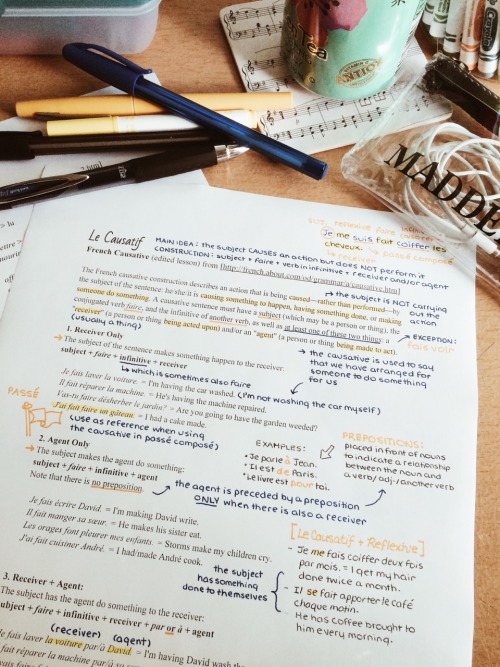 Tea
VITAMIN C
ANTIOX
MADDE
Le Causatif
MAIN IDEA: the subject CAUSES an action but DOES NOT perform it
CONSTRUCTION: subject + faire + verb in infinitive + receiver and/or agent
French Causative (edited lesson) from [http://french.about.com/od/grammar/a/causative.htm]
suj. reflexive faire infinitive
Je me suis fait coiffer les
cheveux. → passé composé
↳ receiver
The French causative construction describes an action that is being caused—rather than performed—by
the subject of the sentence: he/she/it is causing something to happen, having something done, or making
someone do something. A causative sentence must have a subject (which may be a person or thing), the
conjugated verb faire, and the infinitive of another verb, as well as at least one of these two things: a
"receiver" (a person or thing being acted upon) and/or an "agent" (a person or thing being made to act).
→ the subject is NOT carrying
out the
action
(usually a thing)
EXCEPTION:
fais voir
1. Receiver Only
→ The subject of the sentence makes something happen to the receiver:
subject + faire + infinitive + receiver
↳ which is sometimes also faire
→ the causative is used to say
that we have arranged for
someone to do something
for us
Je fais laver la voiture. = I'm having the car washed. (I'm not washing the car myself)
Il fait réparer la machine. = He's having the machine repaired.
Vas-tu faire désherber le jardin? = Are you going to have the garden weeded?
J'ai fait faire un gâteau. = I had a cake made.
PASSÉ
(use as reference when using
the causative in passé composé)
2. Agent Only
→ The subject makes the agent do something:
subject + faire + infinitive + agent
Note that there is no preposition.
→ the agent is preceded by a preposition
ONLY when there is also a receiver
EXAMPLES:
• Je parle à Jean.
• Il est de Paris.
• Le livre est pour toi.
PREPOSITIONS:
placed in front of nouns
to indicate a relationship
between the noun and
a verb/adj./another verb
Je fais écrire David. = I'm making David write.
Il fait manger sa sœur. = He makes his sister eat.
Les orages font pleurer mes enfants. = Storms make my children cry.
J'ai fait cuisiner André. = I had/made André cook.
the subject
has something
done to themselves
[Le Causatif + Reflexive]
- Je me fais coiffer deux fois
par mois. = I get my hair
done twice a month.
- Il se fait apporter le café
chaque matin.
He has coffee brought to
him every morning.
3. Receiver + Agent:
The subject has the agent do something to the receiver:
subject + faire + infinitive + receiver + par or à + agent
(receiver) (agent)
Je fais laver la voiture par/à David. = I'm having David wash the